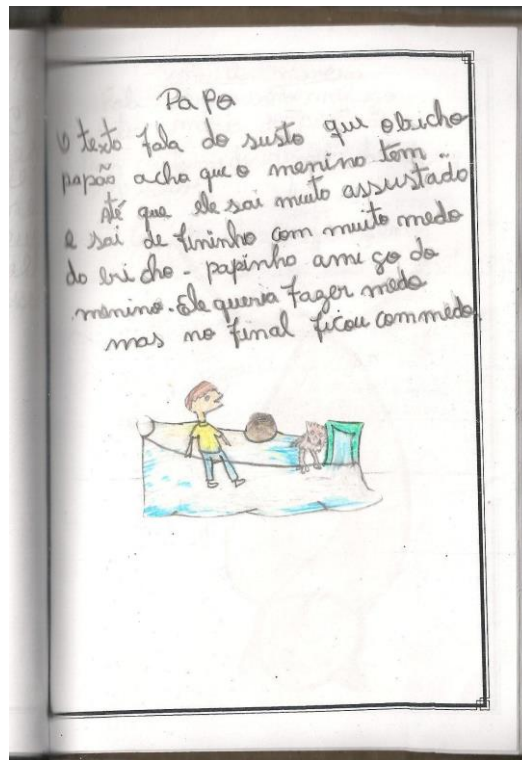 Papo
O texto fala do susto qui obicho
papão acha que o menino tem
Até que ele sai muito assustado
e sai de fininho com muito medo
do bricho - papinho ami go do
menino. Ele queria fazer medo
mas no final ficou commedo